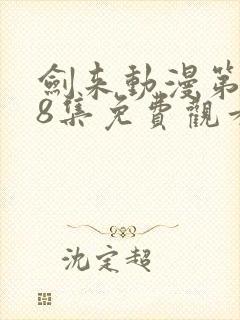 劍来動漫第
8集免費觀看
沈定超